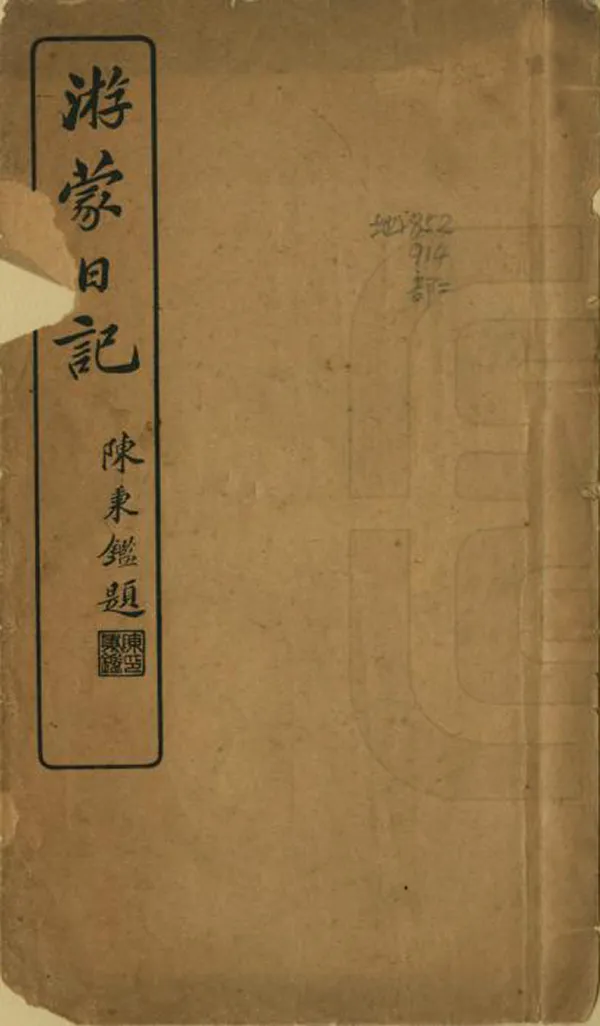 游蒙日記
陳秉鑑題
地 852
914
部二